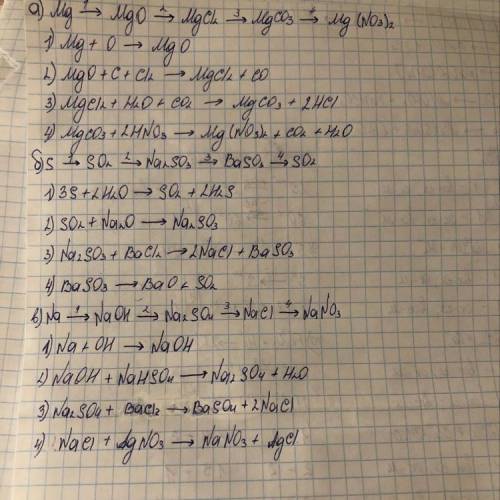 а) Mg →¹ MgO →² MgCl₂ →³ MgCO₃ →⁴ Mg(NO₃)₂
1) Mg + O → MgO
2) MgO + C + Cl₂ → MgCl₂ + CO
3) MgCl₂ + H₂O + CO₂ → MgCO₃ + 2HCl
4) MgCO₃ + 2HNO₃ → Mg(NO₃)₂ + CO₂ + H₂O
б) S →¹ SO₂ →² Na₂SO₃ →³ BaSO₃ →⁴ SO₂
1) 3S + 2H₂O → SO₂ + 2H₂S
2) SO₂ + Na₂O → Na₂SO₃
3) Na₂SO₃ + BaCl₂ → 2NaCl + BaSO₃
4) BaSO₃ → BaO + SO₂
в) Na →¹ NaOH →² Na₂SO₄ →³ NaCl →⁴ NaNO₃
1) Na + OH → NaOH
2) NaOH + NaHSO₄ → Na₂SO₄ + H₂O
3) Na₂SO₄ + BaCl₂ → BaSO₄ + 2NaCl
4) NaCl + AgNO₃ → NaNO₃ + AgCl